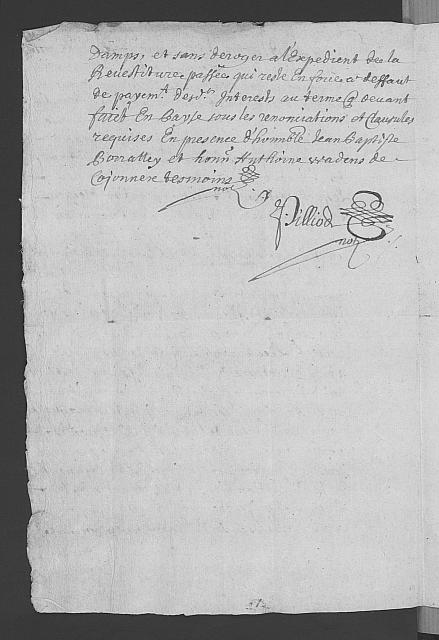 Damps, et sans deroger a l'Expedient de la
Revestiture passée, qui reste en force a deffaut
de payemt. desd. Interests au terme devant
faict En Bayse sous les renonciations et Clausules
requises En presence d'honnble Jean Baptiste
et honn. Anthoine de
Cojonnere tesmoins
not
Pilliod
not